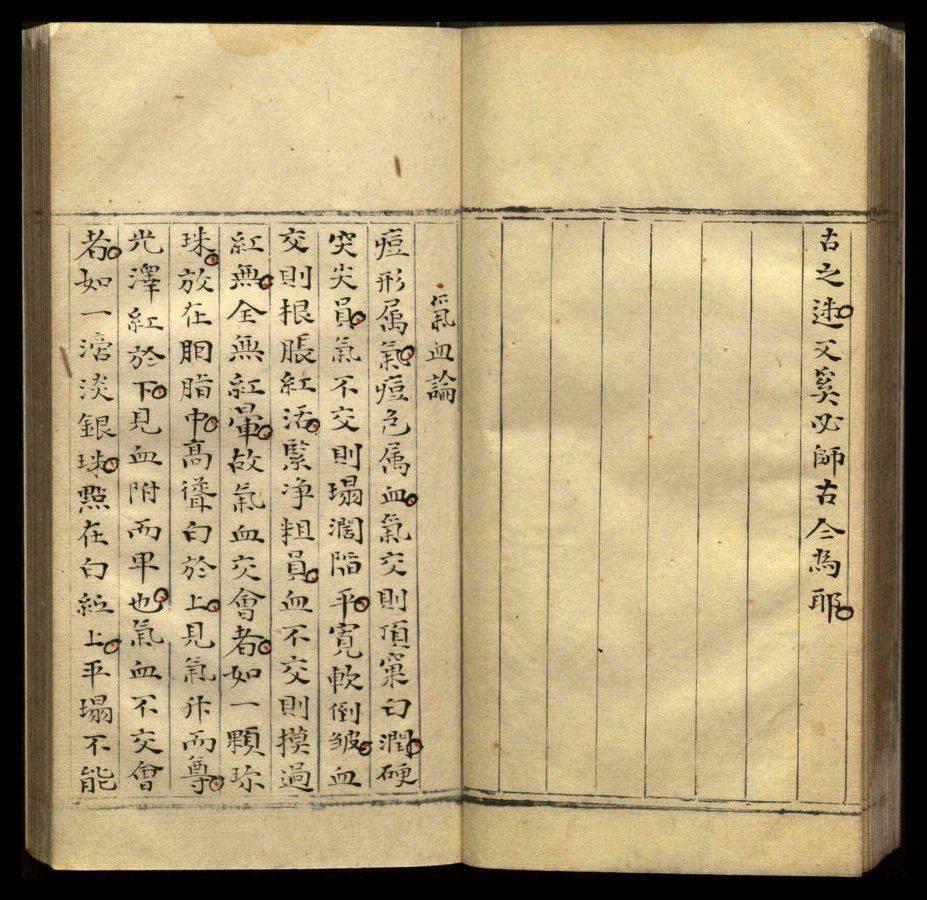 古之迹又奚必師古今為耶
氣血論
痘形属氣痘色属血氣交則頂窠白潤硬
突尖員氣不交則塌濶陷平寬軟倒皱血
交則根脹紅活緊净粗員血不交則摸過
紅無全無紅暈故氣血交會者如一顆珎
珠放在胭脂中高聳白於上見氣升而尊
光澤紅於下見血附而卑也氣血不交會
者如一淡銀珠㸃在白紙上平塌不能